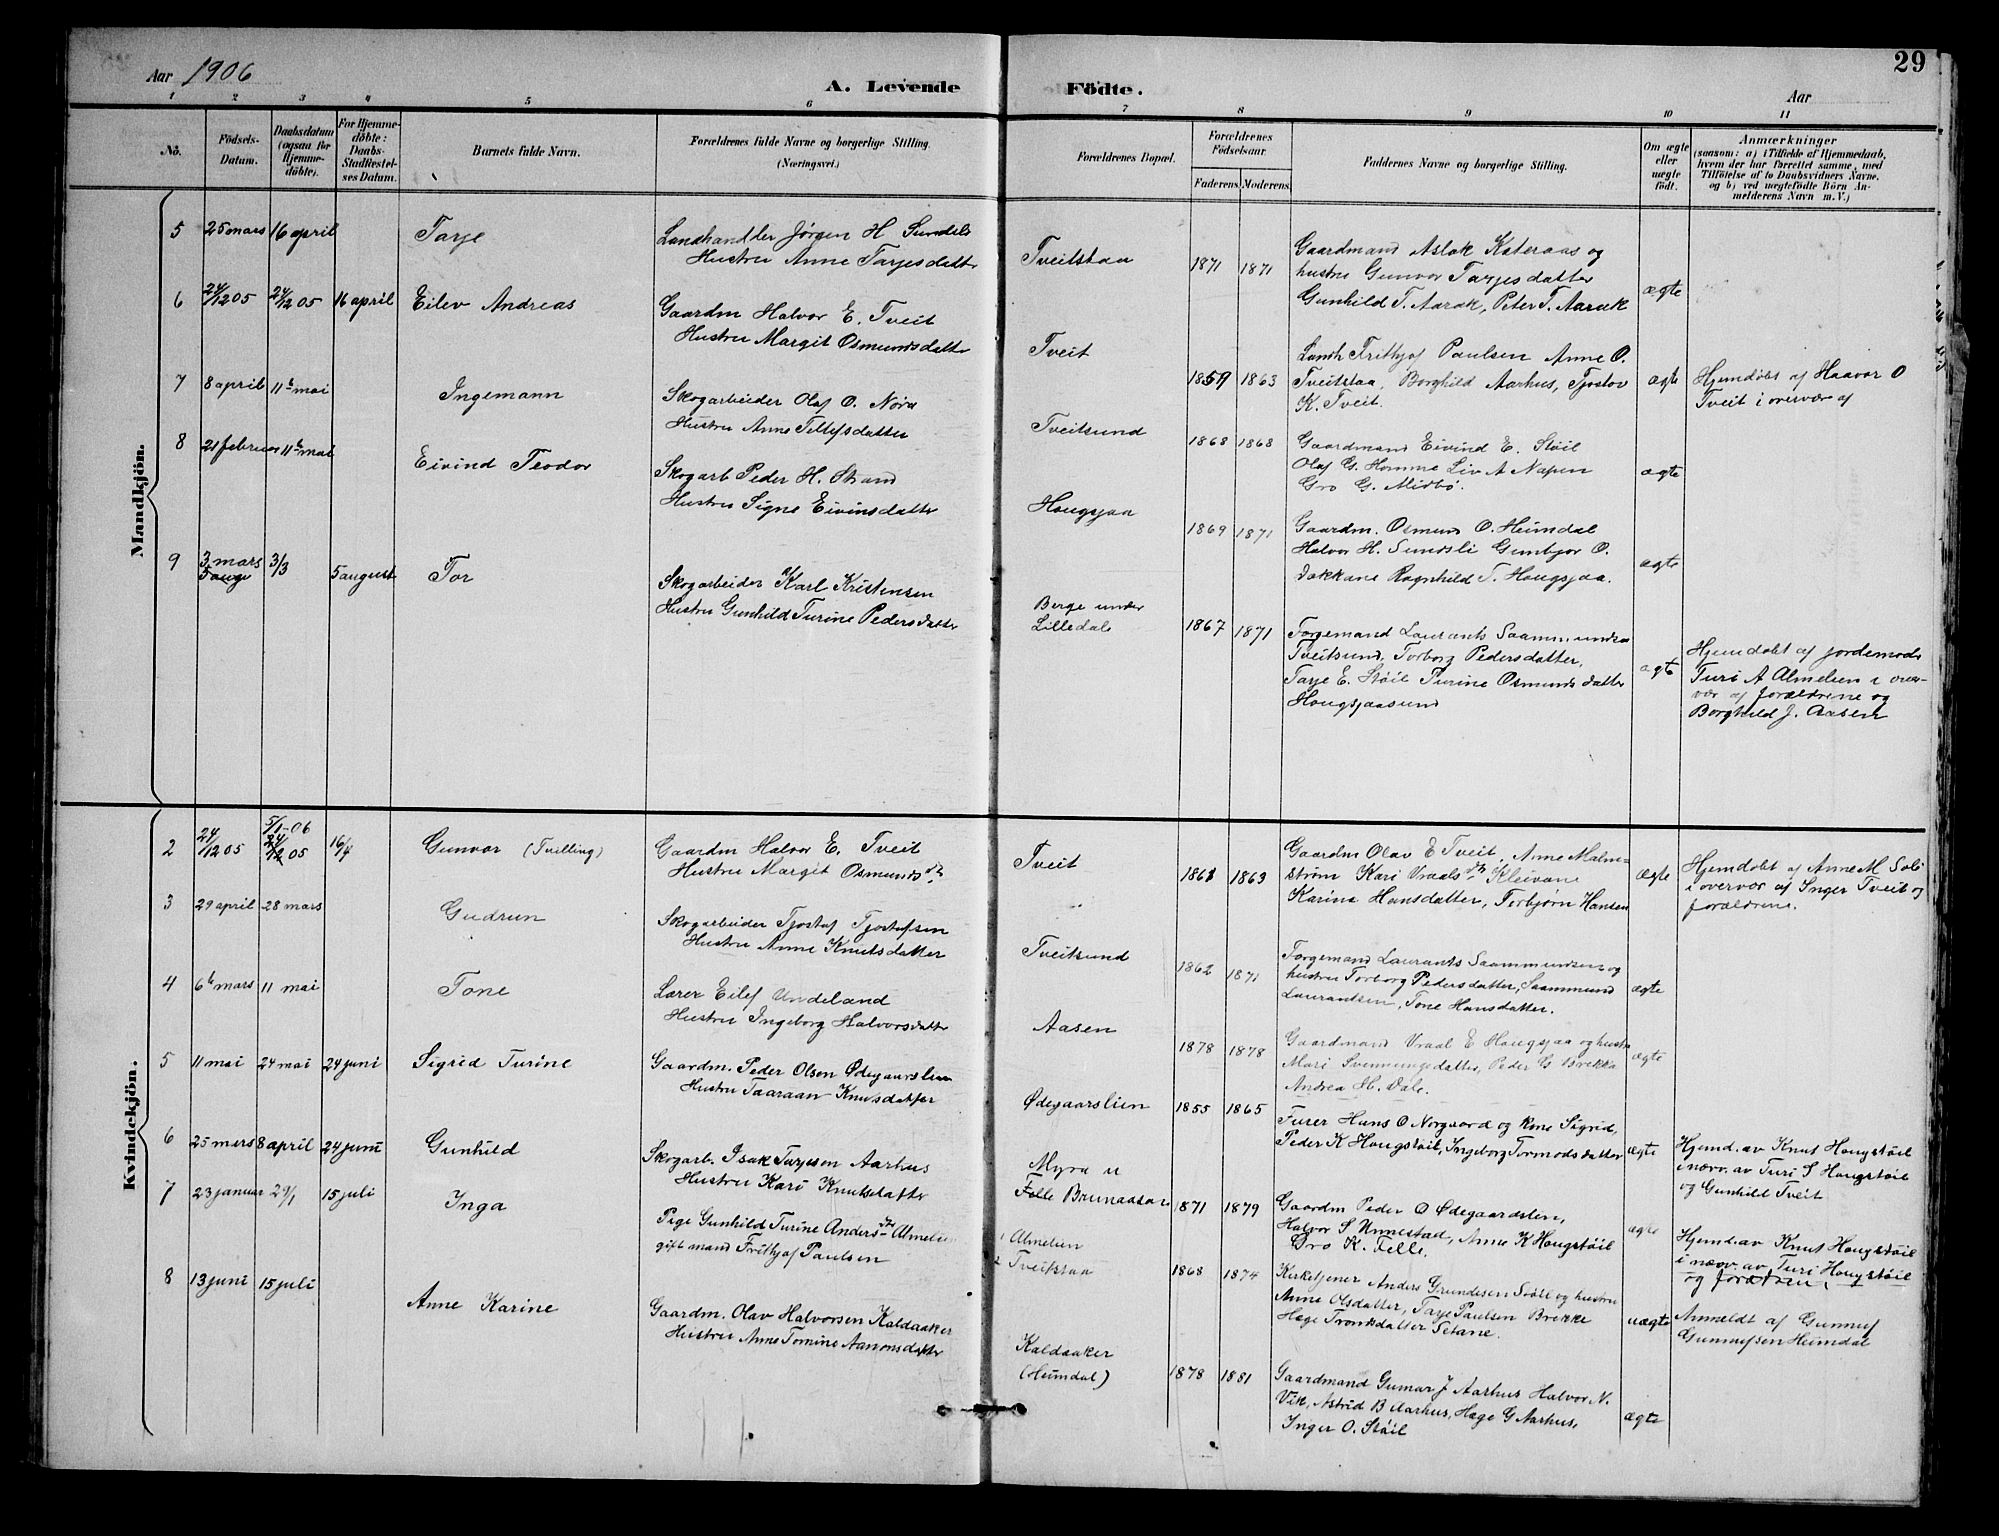 29
Aar 1906
A. Levende Födte.
Aar
1 2 3 4 5 6 7 8 9 10 11
No.
Födsels-Datum.
Daabsdatum (ogsaa for Hjemme-döbte).
For Hjemme-döbte: Daabs-Stadfæstel-ses Datum.
Barnets fulde Navn.
Forældrenes fulde Navne og borgerlige Stilling.
(Næringsvei.)
Forældrenes Bopæl.
Forældrenes Födselsaar.
Faderens. Moderens.
Faddernes Navne og borgerlige Stilling.
Om ægte eller uægte födt.
Anmærkninger
(saasom: a) i Tilfælde af Hjemmedaab,
hvem der har forrettet samme, med
Tilföielse af to Daabsvidners Navne,
og b) ved uægtefödte Börn An-
melderens Navn m.V.)
Mandkjön.
5 25 mars 16 april Tarje
Landhandler Jørgen H Sundsli
Hustru Anne Tarjesdatter
Tveitstaa 1871 1871
Gaardmand Aslak Kateraas og
hustru Gunvor Tarjesdatter
Gunhild T. Aarak, Peter T. Aarak
ægte
6 24/12 05 24/12 05 16 april Eilev Andreas
Gaardm Halvor E. Tveit
Hustru Margit Osmundsdatter
Tveit 1859 1863
Landh Frithjof Paulsen Anne O.
Tveitstaa, Borghild Aarhus, Tjostov
K. Tveit.
ægte
Hjemdøbt af Haavor O
Tveit i overvær af
7 8 april 11te mai Ingemann
Skogarbeider Olaf O. Nøra
Hustru Anne Tellefsdatter
Tveitsund 1868 1868
Gaardmand Eivind E. Støil
Olaf G. Homme Liv A Napen
Gro G. Midbø.
ægte
8 21 februar 11te mai Eivind Teodor
Skogarb Peder H. Strand
Hustru Signe Eivinsdatter
Hougsjaa 1869 1871
Gaardm. Osmund O. Heimdal
Halvor H. Sundsli Gunbjor O.
Dakkane Ragnhild T. Hougsjaa.
ægte
9 3 mars 5 aug 3/3 5 august Tor
Skogarbeider Karl Kristensen
Hustru Gunhild Turine Pedersdatter
Berge under
Lilledale
1867 1871
Forgemand Laurants Saammundsen
Tveitsund, Torborg Pedersdatter,
Tarje E. Støil Turine Osmundsdatter
Hougsjaasund
ægte
Hjemdøbt af jordemoder
Turi A Almelien i over-
vær af forældrene og
Borghild J. Aasen
Kvindekjön.
2 24/12 05 5/1-06 24/12 05 16/4 Gunvor (Tvilling)
Gaardm Halvor E. Tveit
Hustru Margit Osmundsdtr
Tveit 1861 1863
Gaardm Olav E Tveit, Anne Malm-
strøm Kari Vraalsdtr Kleivane
Karina Hansdatter, Torbjørn Hansen
ægte
Hjemdøbt af Anne M Soli
i overvær af Inger Tveit og
forældrene.
3 29 april 28 mars Gudrun
Skogarbeider Tjostaf Tjostafsen
Hustru Anne Knutsdatter
Tveitsund 1862 1871
Forgemand Laurants Saammundsen og
hustru Torborg Pedersdatter, Saammund
Laurantsen, Tone Hansdatter.
ægte
4 6te mars 11 mai Tone
Lærer Eilef Undeland
Hustru Ingeborg Halvorsdatter
Aasen 1878 1878
Gaardmand Vraal E Hougsjaa og hustru
Mari Svenningsdatter, Peder G Brekka
Andrea H. Dale.
ægte
5 11 mai 24 mai 24 juni Sigrid Turine
Gaardm. Peder Olsen Ødegaarslien
Hustru Taaraan Knusdatter
Ødegaarslien 1855 1865
Furer Hans O Norgaard og kone Sigrid,
Peder K Hougstøil, Ingeborg Tormodsdatter
ægte
Hjemd. av Knut Hougstøil
i nærv. av Turi S Hougstøil
og Gunhild Tveit
6 25 mars 8 april 24 juni Gunhild
Skogarb. Isak Tarjesen Aarhus
Hustru Kari Knutsdatter
Myra u
Felle Brunaasan
1871 1879
Gaardm Peder O Ødegaardslien,
Halvor S Unnestad, Anne K Hougstøil
Gro K. Felle.
ægte
Hjemd. av Knut Hougstøil
i nærv. av Turi Hougstøil
og forældrene
7 23 januar 29/1 15 juli Inga
Pige Gunhild Turine Andersdtr Almelien
gift mand Frithjof Paulsen
Almelien
Tveitstaa
1868 1874
Kirketjener Anders Grundesen Støil og hustru
Anne Olsdatter, Tarje Paulsen Brekke
Hæge Tronksdatter Tetane.
uægte
Anmeldt af Gunnuf
Gunnufsen Heimdal
8 13 juni 15 juli Anne Karine
Gaardm. Olav Halvorsen Kaldaaker
Hustru Anne Tomine Aanonsdatter
Kaldaaker
(Heimdal)
1878 1881
Gaardmand Gumar J Aarhus Halvor N.
Vik, Astrid B Aarhus, Hæge G Aarhus,
Inger O. Støil
ægte